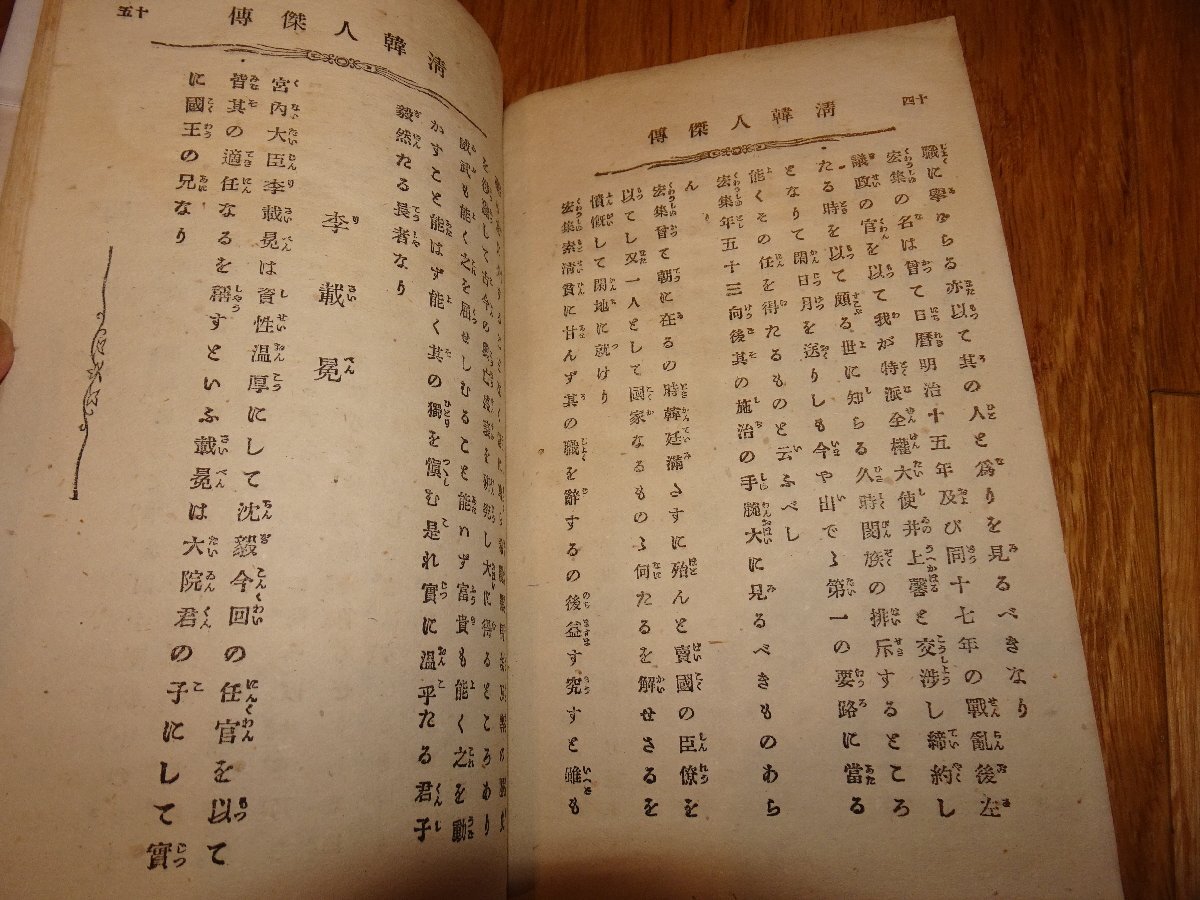 清韓人傑傳
十四
職に擧ゆらる亦以て其の人と爲りを見るべきなり
宏集の名は曾て日曆明治十五年及び同十七年の戰亂後左
議政の官を以て我が特派全權大使井上馨と交渉し締約し
たる時を以て頗る世に知らる久時閔族の排斥するところ
となりて閑日月を送りしも今や出でゝ第一の要路に當る
能くその任を得たるものと云ふべし
宏集年五十三向後其の施治の手腕大に見るべきものあら
ん
宏集曾て朝に在るの時韓廷滿さすに殆んと賣國の臣僚を
以てし又一人として國家なるものゝ何たるを解せさるを
憤慨して閑地に就けり
宏集素淸貧に甘んず其の職を辭するの後益す究すと雖も
清韓人傑傳
十五
威武も能く之を屈せしむること能はず富貴も能く之を動
かすこと能はず能く其の獨を愼む是れ實に溫乎たる君子
毅然たる長者なり
李載冕
宮內大臣李載冕は資性溫厚にして沈毅今回の任官を以て
皆其の適任なるを稱すといふ載冕は大院君の子にして實
に國王の兄なり